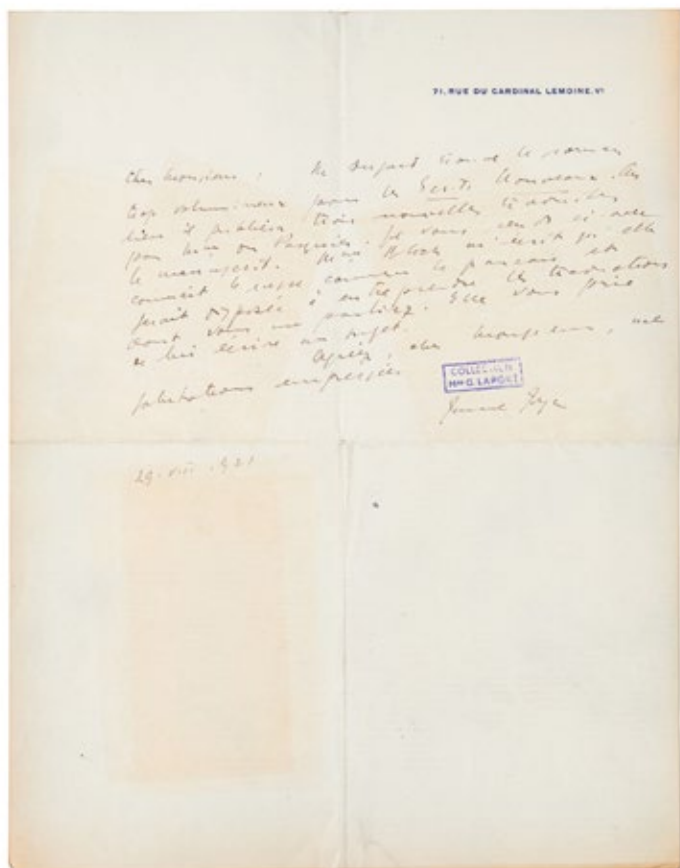 71, RUE DU CARDINAL LEMOINE. Vᵉ
Cher Monsieur, le roman
trop pour les Ecrits Nouveaux.
bien il publiera trois nouvelles traduites
par Mme du Pasquier. Je vous rends ci
le manuscrit. Mme Bloch m'écrit qu'elle
connait le russe comme le français et
serait disposée à entreprendre les traductions
dont vous me parliez. Elle vous prie
de lui écrire au sujet.
Agréez, cher Monsieur, mes
salutations empressées
COLLECTION
Mme G. LAPORTE
James Joyce
29.viii.921